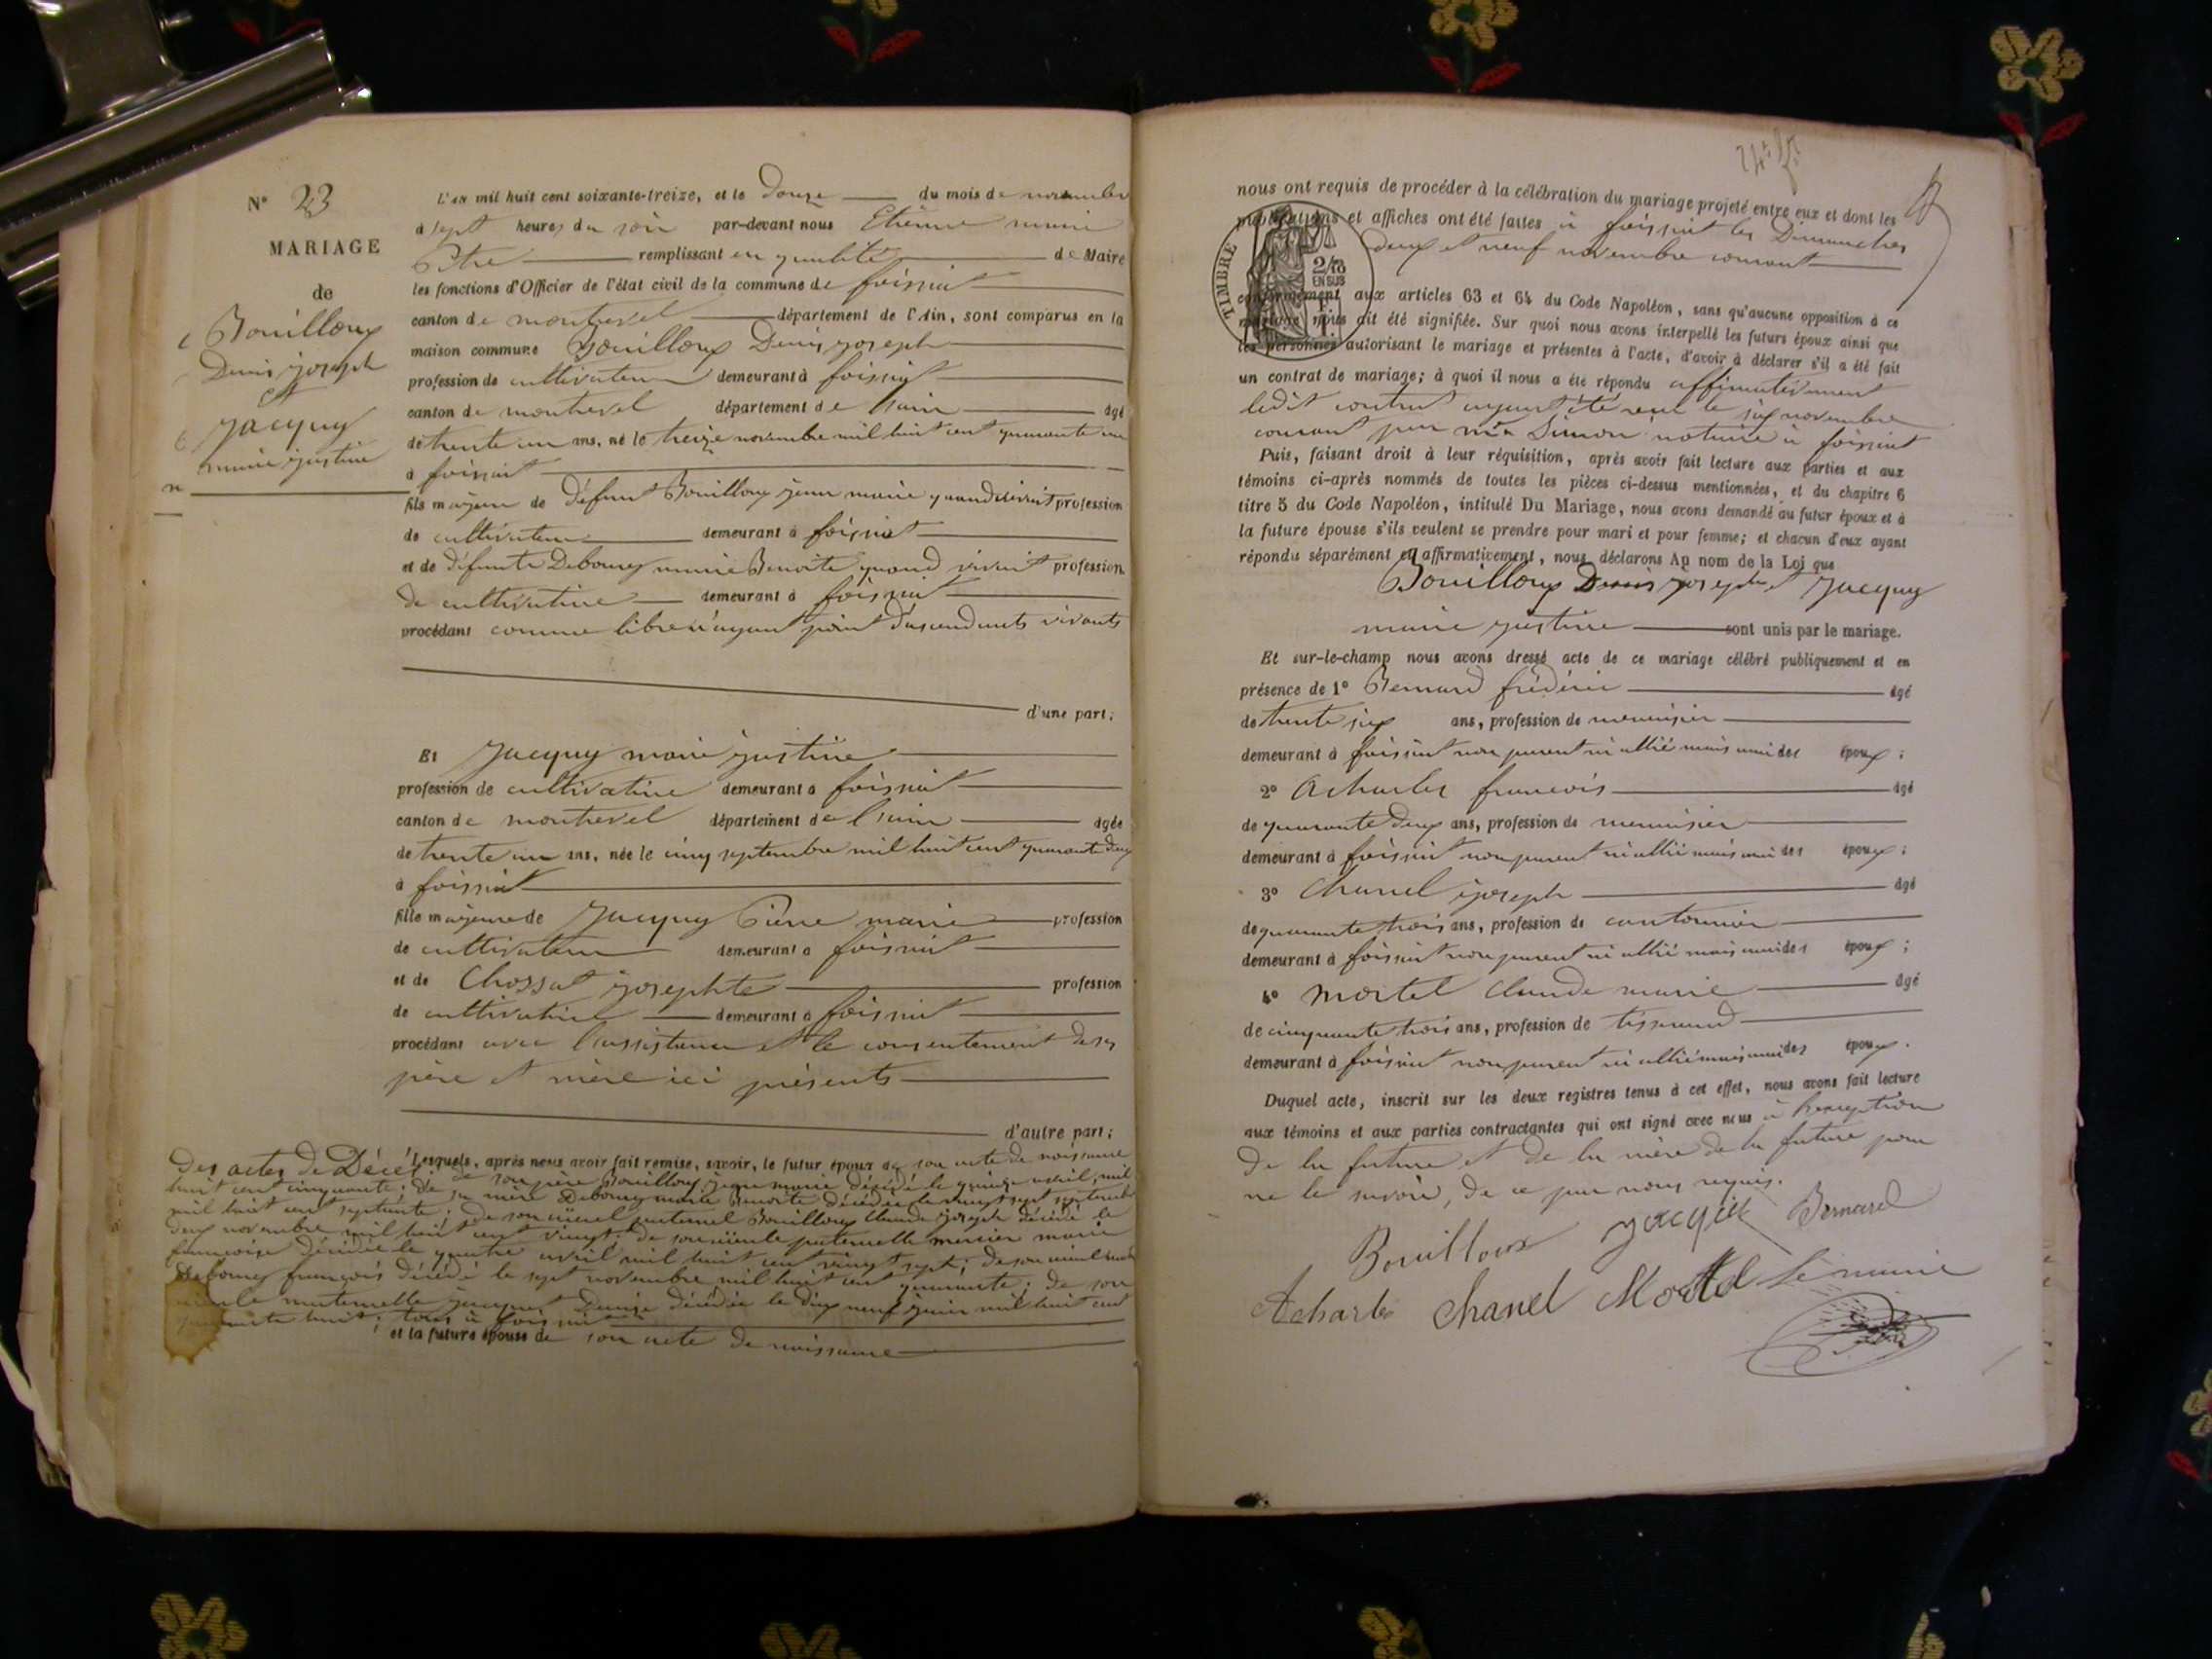 N° 23
MARIAGE
de
Bouilloux
Denis joseph
et
Jacquy
marie justine
L'AN mil huit cent soixante-treize, et le douze du mois de novembre
à sept heures du soir par-devant nous Etienne marie
Pitre remplissant en qualité de Maire
les fonctions d'Officier de l'état civil de la commune de foissiat
canton de montrevel département de l'Ain, sont comparus en la
maison commune Bouilloux Denis joseph
profession de cultivateur demeurant à foissiat
canton de montrevel département de l'ain âgé
de trente un ans, né le treize novembre mil huit cent quarante un
à foissiat
fils majeur de défunt Bouilloux jean marie quand vivait profession
de cultivateur demeurant à foissiat
et de défunte Debourg marie Benoite quand vivait profession
de cultivatrice demeurant à foissiat
procédant comme libre n'ayant point d'ascendants vivants
d'une part;
Et Jacquy marie justine
profession de cultivatrice demeurant à foissiat
canton de montrevel département de l'ain âgée
de trente un ans, née le cinq septembre mil huit cent quarante deux
à foissiat
fille majeure de Jacquy Pierre marie profession
de cultivateur demeurant à foissiat
et de Chossat josephte profession
de cultivatrice demeurant à foissiat
procédant avec l'assistance et le consentement de ses
père et mère ici présents
d'autre part;
Lesquels, après nous avoir fait remise, savoir, le futur époux de son acte de naissance
des actes de Décès de son père Bouilloux jean marie décédé le quinze avril mil
huit cent cinquante; de sa mère Debourg marie Benoite décédée le vingt sept septembre
mil huit cent septante; de son aïeul paternel Bouilloux Claude joseph décédé le
deux novembre mil huit cent vingt; de son aïeule paternelle mercier marie
françoise décédée le quatre avril mil huit cent vingt sept; de son aïeul
Debourg françois décédé le sept novembre mil huit cent quarante; de son
aïeule maternelle Jacquet Denise décédée le dix neuf juin mil huit cent
quarante huit; tous à foissiat
et la future épouse de son acte de naissance
nous ont requis de procéder à la célébration du mariage projeté entre eux et dont les
publications et affiches ont été faites à foissiat les Dimanches
deux et neuf novembre courant
TIMBRE
2/10
EN SUS
conformément aux articles 63 et 64 du Code Napoléon, sans qu'aucune opposition à ce
mariage nous ait été signifiée. Sur quoi nous avons interpellé les futurs époux ainsi que
les personnes autorisant le mariage et présentes à l'acte, d'avoir à déclarer s'il a été fait
un contrat de mariage; à quoi il nous a été répondu affirmativement
ledit contrat ayant été reçu le six novembre
courant par me Simon notaire à foissiat
Puis, faisant droit à leur réquisition, après avoir fait lecture aux parties et aux
témoins ci-après nommés de toutes les pièces ci-dessus mentionnées, et du chapitre 6
titre 5 du Code Napoléon, intitulé Du Mariage, nous avons demandé au futur époux et à
la future épouse s'ils veulent se prendre pour mari et pour femme; et chacun d'eux ayant
répondu séparément et affirmativement, nous déclarons Au nom de la Loi que
Bouilloux Denis joseph et Jacquy
marie justine sont unis par le mariage.
Et sur-le-champ nous avons dressé acte de ce mariage célébré publiquement et en
présence de 1° Bernard frédéric âgé
de trente six ans, profession de menuisier
demeurant à foissiat non parent ni allié mais ami des époux;
2° Acharles francois âgé
de quarante deux ans, profession de menuisier
demeurant à foissiat non parent ni allié mais ami des époux;
3° Chanel joseph âgé
de quarante trois ans, profession de cantonnier
demeurant à foissiat non parent ni allié mais ami des époux;
4° mortel claude marie âgé
de cinquante trois ans, profession de tisserand
demeurant à foissiat non parent ni allié mais ami des époux.
Duquel acte, inscrit sur les deux registres tenus à cet effet, nous avons fait lecture
aux témoins et aux parties contractantes qui ont signé avec nous à l'exception
de la future et de la mère de la future pour
ne le savoir, de ce par nous requis.
Bouilloux Jacquy Bernard
Acharles Chanel Mortel Le maire